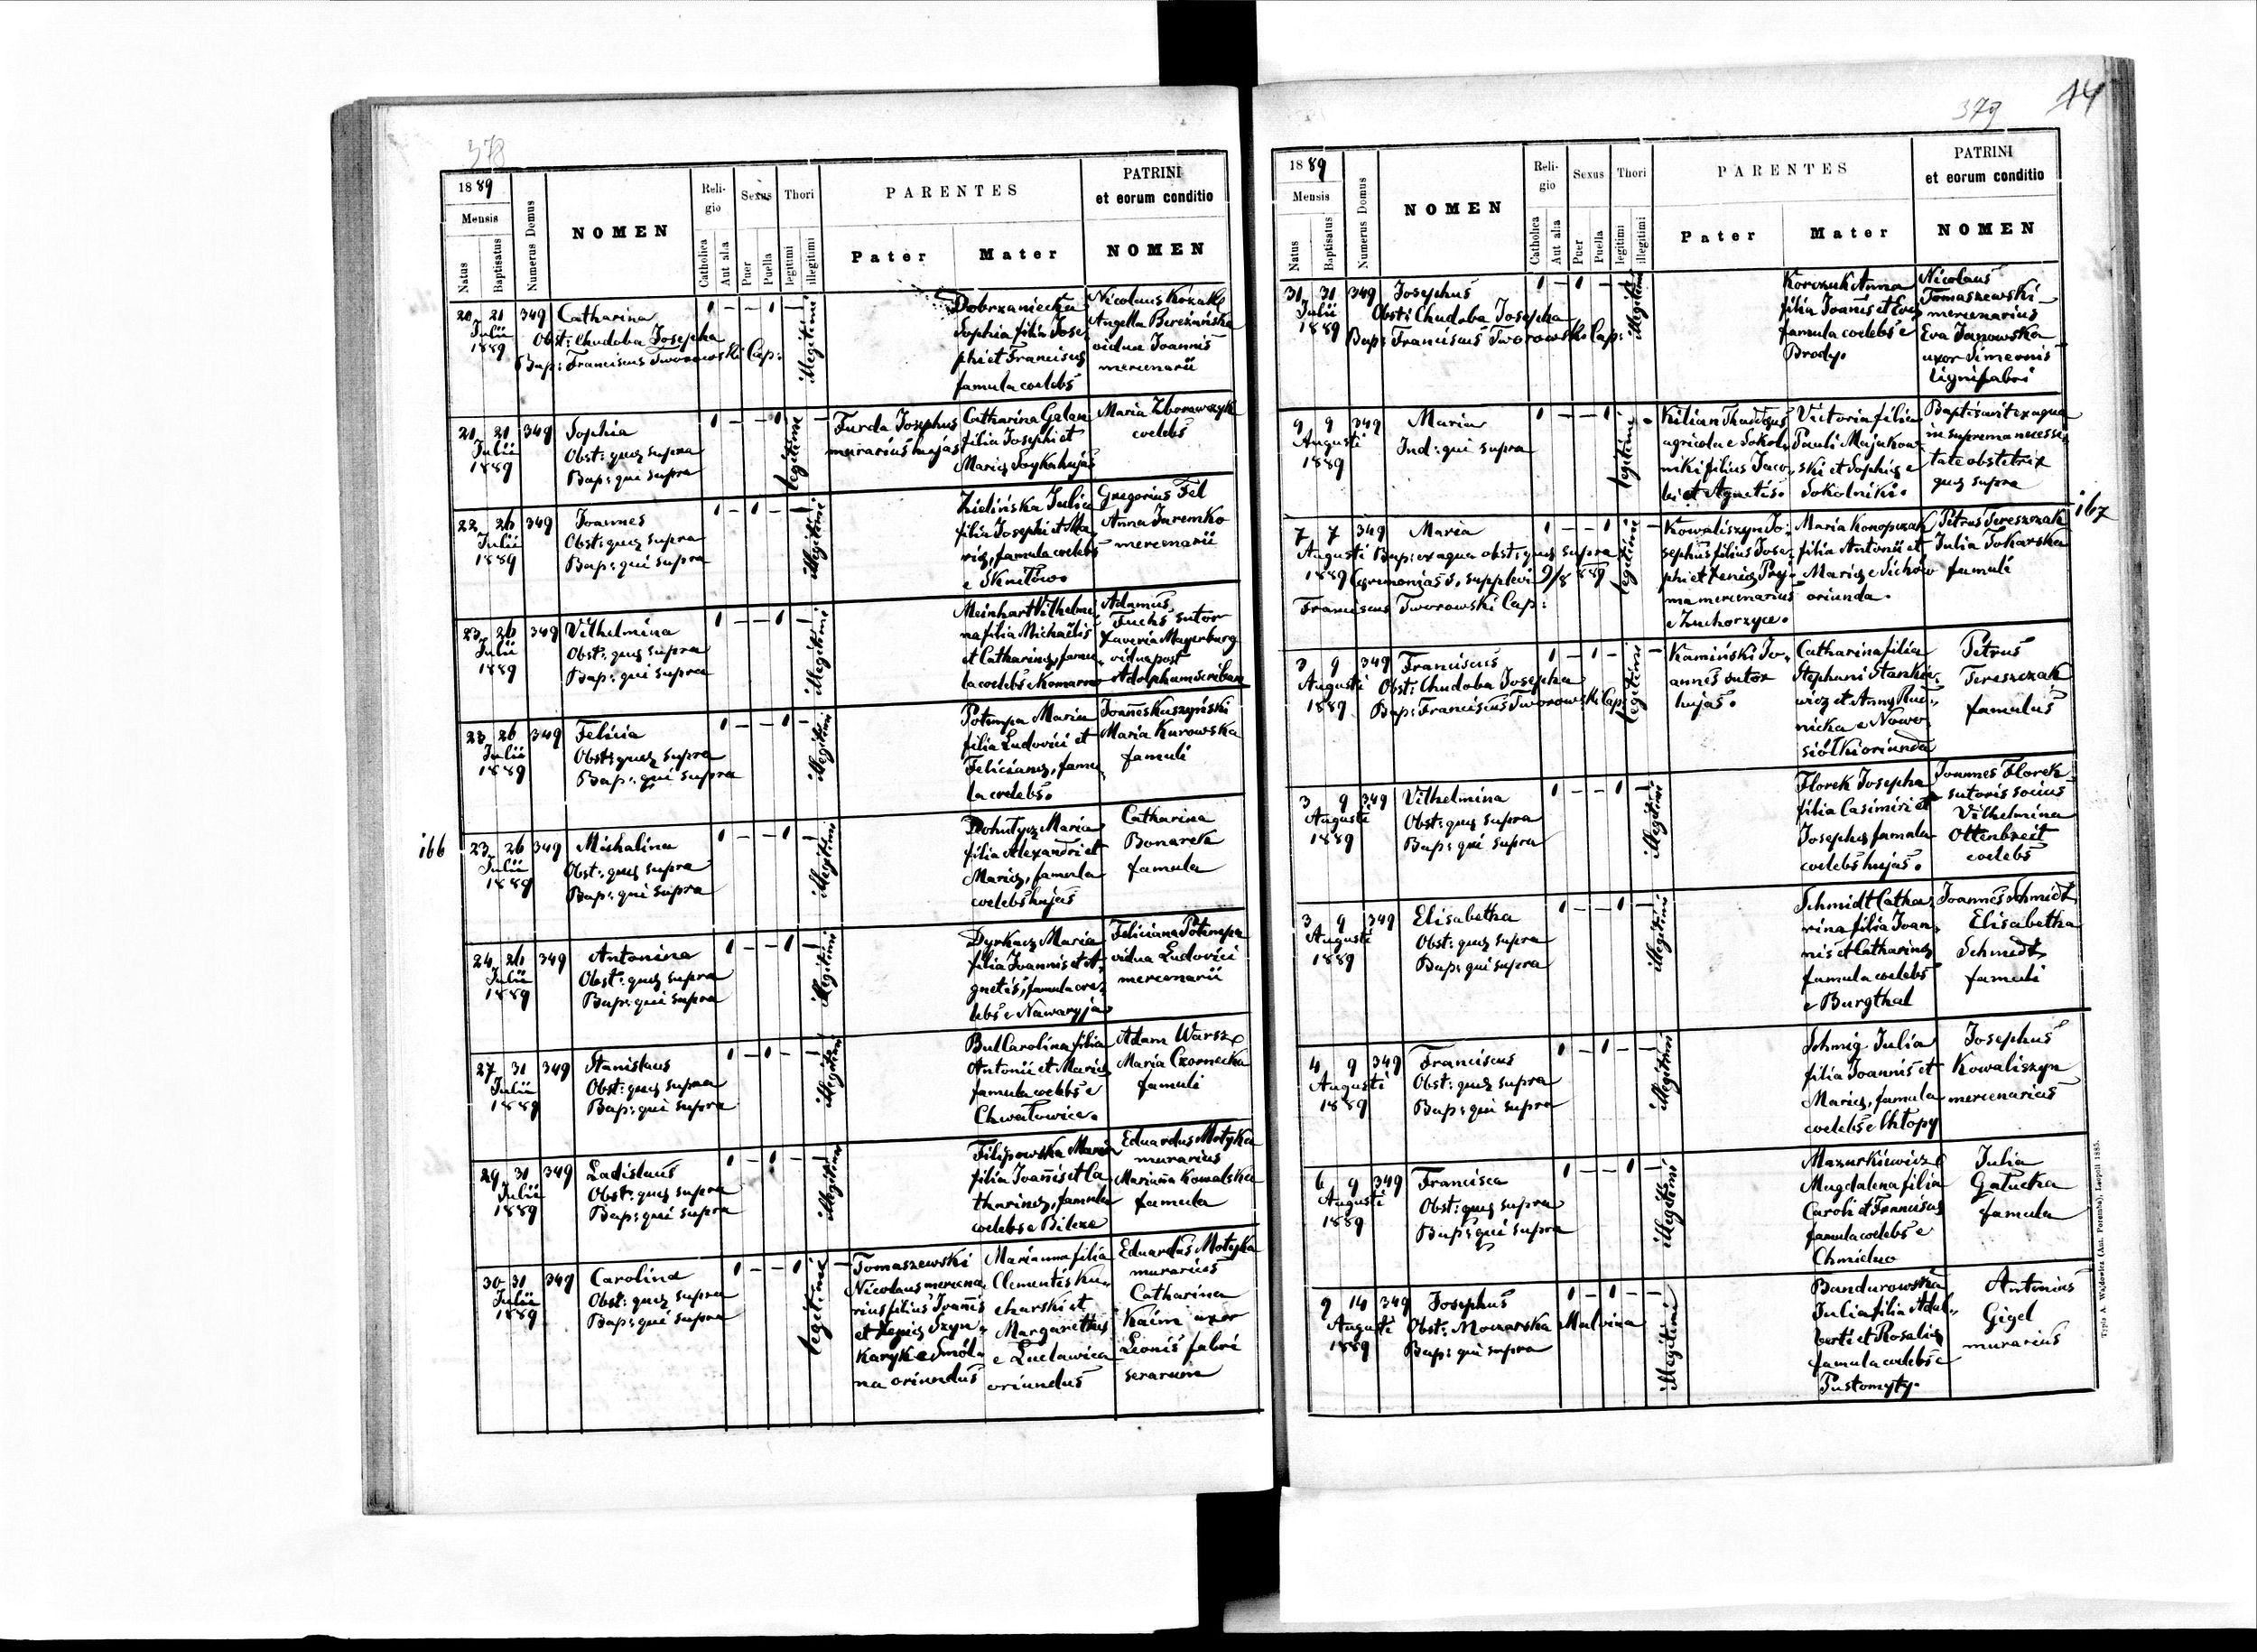 378
1889
Mensis
Natus
Baptisatus
Numerus Domus
NOMEN
Reli-
gio
Catholica
Aut alia
Sexus
Puer
Puella
Thori
legitimi
illegitimi
PARENTES
Pater
Mater
PATRINI
et eorum conditio
NOMEN
20 21 349 Catharina 1 - - 1 -
Julii
1889
Obst: Chudoba Josepha
Bap: Franciscus Tworowski Cap:
illegitimi
Dobrzaniecka
Sophia filia Jose
phi et Franciscę
famula coelebs
Nicolaus Kozak
Angella Bereżańska
vidua Joannis
mercenarii
21 21 349 Sophia 1 - - 1 -
Julii
1889
Obst: quę supra
Bap: qui supra
legitimi
Furda Josephus
murarius hujás
Catharina Galan
filia Josephi et
Marię Soyka hujás
Maria Zborowczyk
coelebs
22 26 349 Joannes 1 - 1 -
Julii
1889
Obst: quę supra
Bap: qui supra
illegitimi
Zielińska Julia
filia Josephi et Ma
rię, famula coelebs
e Skniłów.
Gregorius Fel
Anna Jaremko
mercenarii
23 26 349 Vilhelmina 1 - - 1
Julii
1889
Obst: quę supra
Bap: qui supra
illegitimi
Meinhart Vilhelmi
na filia Michaëlis
et Catharinę, famu
la coelebs e Komarno
Adamus
Fuchs sutor
Xaveria Mayerburg
vidua post
Adolphum scribam
23 26 349 Felicia 1 - - 1 -
Julii
1889
Obst: quę supra
Bap: qui supra
illegitimi
Potempa Maria
filia Ludovici et
Felicianę, famu
la coelebs.
Joannes Kuszyński
Maria Kurowska
famuli
166
23 26 349 Michalina 1 - - 1
Julii
1889
Obst: quę supra
Bap: qui supra
illegitimi
Maria
filia Alexandri et
Marię, famula
coelebs hujás
Catharina
Bonarek
famula
24 26 349 Antonina 1 - - 1
Julii
1889
Obst: quę supra
Bap: qui supra
illegitimi
Dyrkacz Maria
filia Joannis et A
gnetis, famula coe
lebs e Nawaryja
Feliciana Potempa
vidua Ludovici
mercenarii
27 31 349 Stanislaus 1 - 1 -
Julii
1889
Obst: quę supra
Bap: qui supra
illegitimi
Bul Carolina filia
Antonii et Marię
famula coelebs e
Chwałowice.
Adam Warsz
Maria Czornecka
famuli
29 31 349 Ladislaus 1 - 1 -
Julii
1889
Obst: quę supra
Bap: qui supra
illegitimi
Filipowska Maria
filia Joannis et Ca
tharinę, famula
coelebs e Bilcze
Eduardus Motyka
murarius
Marianna Kowalska
famula
30 31 349 Carolina 1 - - 1 -
Julii
1889
Obst: quę supra
Bap: qui supra
legitimi
Tomaszewski
Nicolaus mercena
rius filius Joannis
et Xenię Szyn
karyk e Smól
na oriundus
Marianna filia
Clementis Ku
charski et
Margarethę
e Luclawica
oriundus
Eduardus Motyka
murarius
Catharina
Kaim uxor
Leonis fabri
serarum
379
14
1889
Mensis
Natus
Baptisatus
Numerus Domus
NOMEN
Reli-
gio
Catholica
Aut alia
Sexus
Puer
Puella
Thori
legitimi
illegitimi
PARENTES
Pater
Mater
PATRINI
et eorum conditio
NOMEN
31 31 349 Josephus 1 - 1 -
Julii
1889
Obst: Chudoba Josepha
Bap: Franciscus Tworowski Cap:
illegitimi
Korczuk Anna
filia Joannis et Evę
famula coelebs e
Brody.
Nicolaus
Tomaszewski
mercenarius
Eva Janowska
uxor Simeonis
lignifabri
9 9 349 Maria 1 - - 1
Augusti
1889
Ind: qui supra
legitimi
Kilian Thaddęus
agricola e Sokol
niki filius Jaco
bi et Agnetis.
Victoria filia
Pauli Majakow
ski et Sophię e
Sokolniki.
Baptisavit ex aqua
in suprema necessi
tate obstetrix
quę supra
167
7 7 349 Maria 1 - - 1
Augusti
1889
Bap: ex aqua obst: quę supra
Cęremonias s. supplevi 9/8 889
Franciscus Tworowski Cap:
legitimi
Kowaliszyn Jo
sephus filius Jose
phi et Xenię Pry
ma mercenarius
e Żuchorzyce.
Maria Konopczak
filia Antonii et
Marię e Sichów
oriunda.
Petrus Tereszczak
Julia Tokarska
famuli
3 9 349 Franciscus 1 - 1 -
Augusti
1889
Obst: Chudoba Josepha
Bap: Franciscus Tworowski Cap:
legitimi
Kamiński Jo
annes sutor
hujás.
Catharina filia
Stephani Stankie
wicz et Annę Rud
nicka e Nowo
siółki oriunda
Petrus
Tereszczak
famulus
3 9 349 Vilhelmina 1 - - 1
Augusti
1889
Obst: quę supra
Bap: qui supra
illegitimi
Florek Josepha
filia Casimiri et
Josephę famula
coelebs hujás.
Joannes Florek
sutoris socius
Vilhelmina
Ottenbreit
coelebs
3 9 349 Elisabetha 1 - - 1
Augusti
1889
Obst: quę supra
Bap: qui supra
illegitimi
Schmidt Catha
rina filia Joan
nis et Catharinę
famula coelebs
e Burgthal
Joannes Schmidt
Elisabetha
Schmidt
famuli
4 9 349 Franciscus 1 - 1 -
Augusti
1889
Obst: quę supra
Bap: qui supra
illegitimi
Schmig Julia
filia Joannis et
Marię, famula
coelebs e Chłopy
Josephus
Kowaliszyn
mercenarius
6 9 349 Francisca 1 - - 1
Augusti
1889
Obst: quę supra
Bap: qui supra
illegitimi
Mazurkiewicz
Magdalena filia
Caroli et Franciscę
famula coelebs e
Chmielno
Julia
Gałucka
famula
9 14 349 Josephus 1 - 1 -
Augusti
1889
Obst: Moczarska Malvina
Bap: qui supra
illegitimi
Bandurowska
Julia filia Adal
berti et Rosalię
famula coelebs e
Pustomyty.
Antonius
Gigel
murarius
Typis A. Wajdowicz (Ant. Poremba), Leopoli 1885.